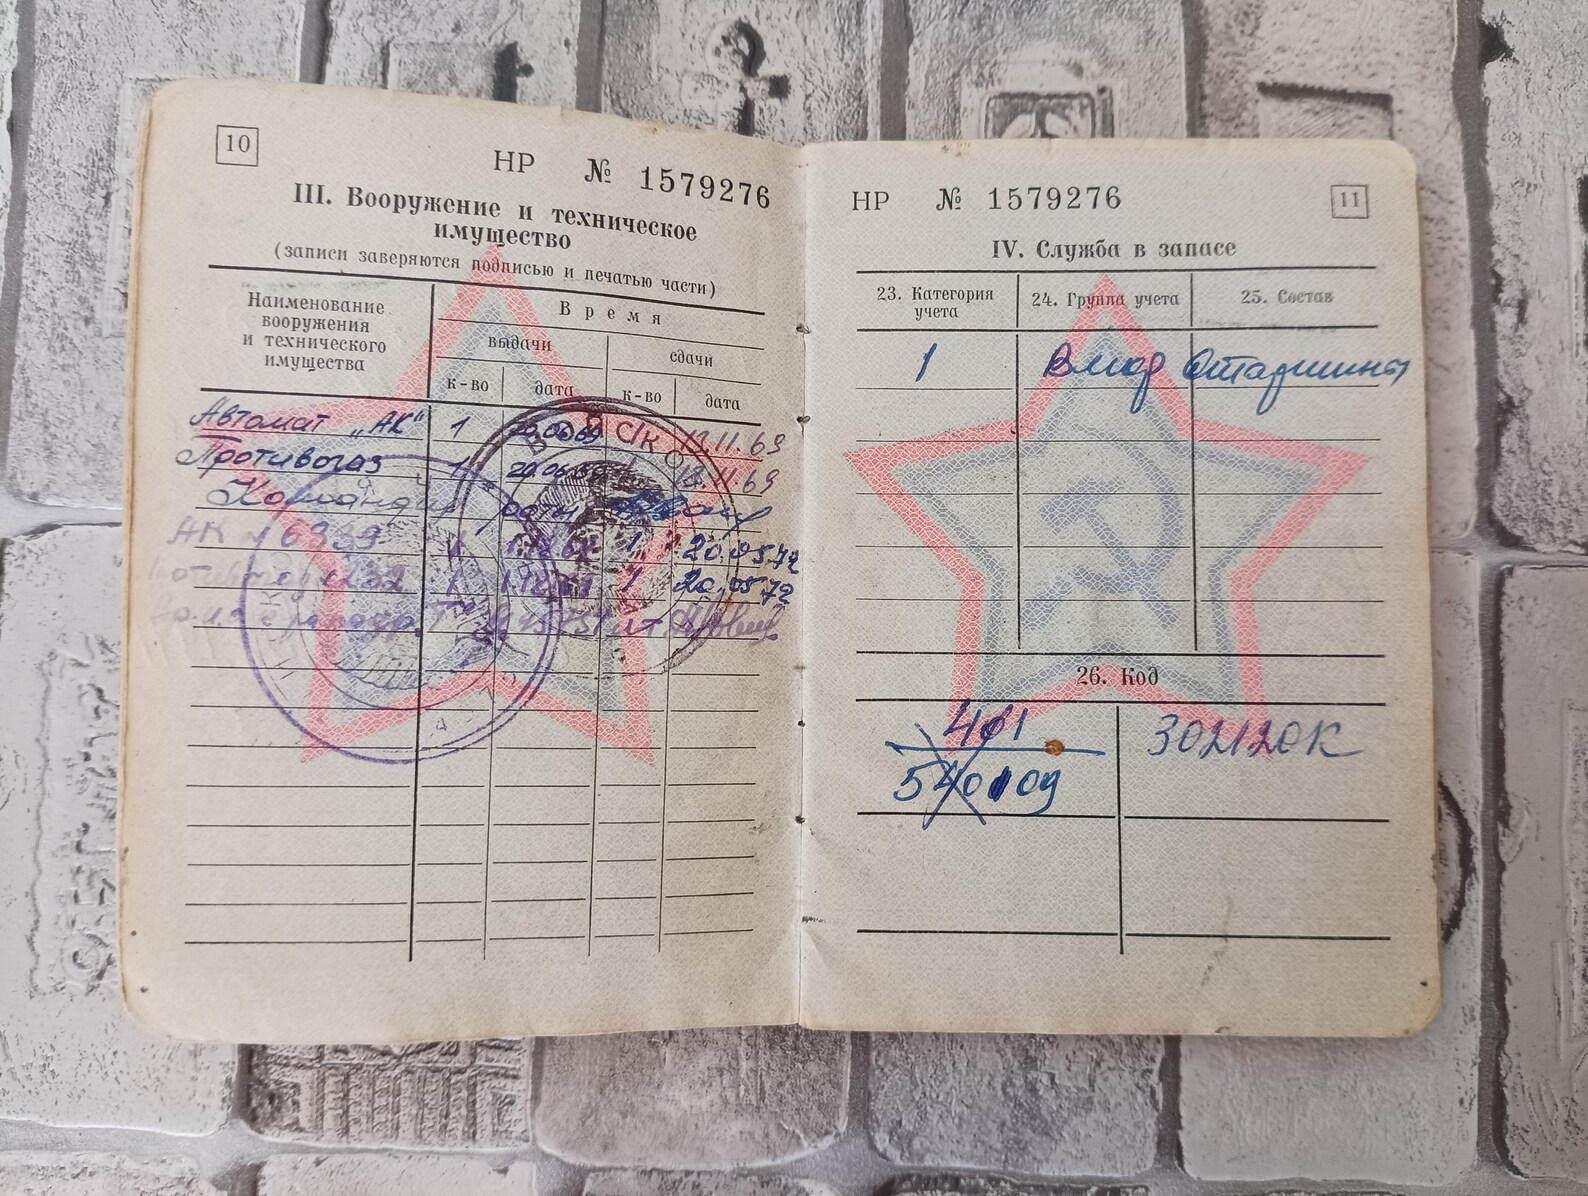 10
НР № 1579276
III. Вооружение и техническое
имущество
(записи заверяются подписью и печатью части)
Наименование
вооружения
и технического
имущества
Время
выдачи
сдачи
к-во
дата
к-во
дата
Автомат „АК“ 1 20.06.69 13.11.69
Противогаз 1 20.06.69 13.11.69
роты
АК 1 1 20.05.72
1 1 20.05.72
НР № 1579276
11
IV. Служба в запасе
23. Категория
учета
24. Группа учета
25. Состав
1
26. Код
401
540109
302120К